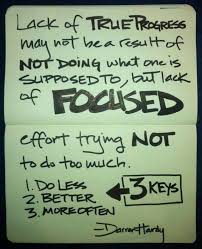 Lack of TRUE PROGRESS
may not be a result of
NOT DOING what one is
SUPPOSED TO, but lack
of FOCUSED
effort trying NOT
to do too much.
1. DO LESS
2. BETTER
3. MORE OFTEN
3 KEYS
-Darren Hardy